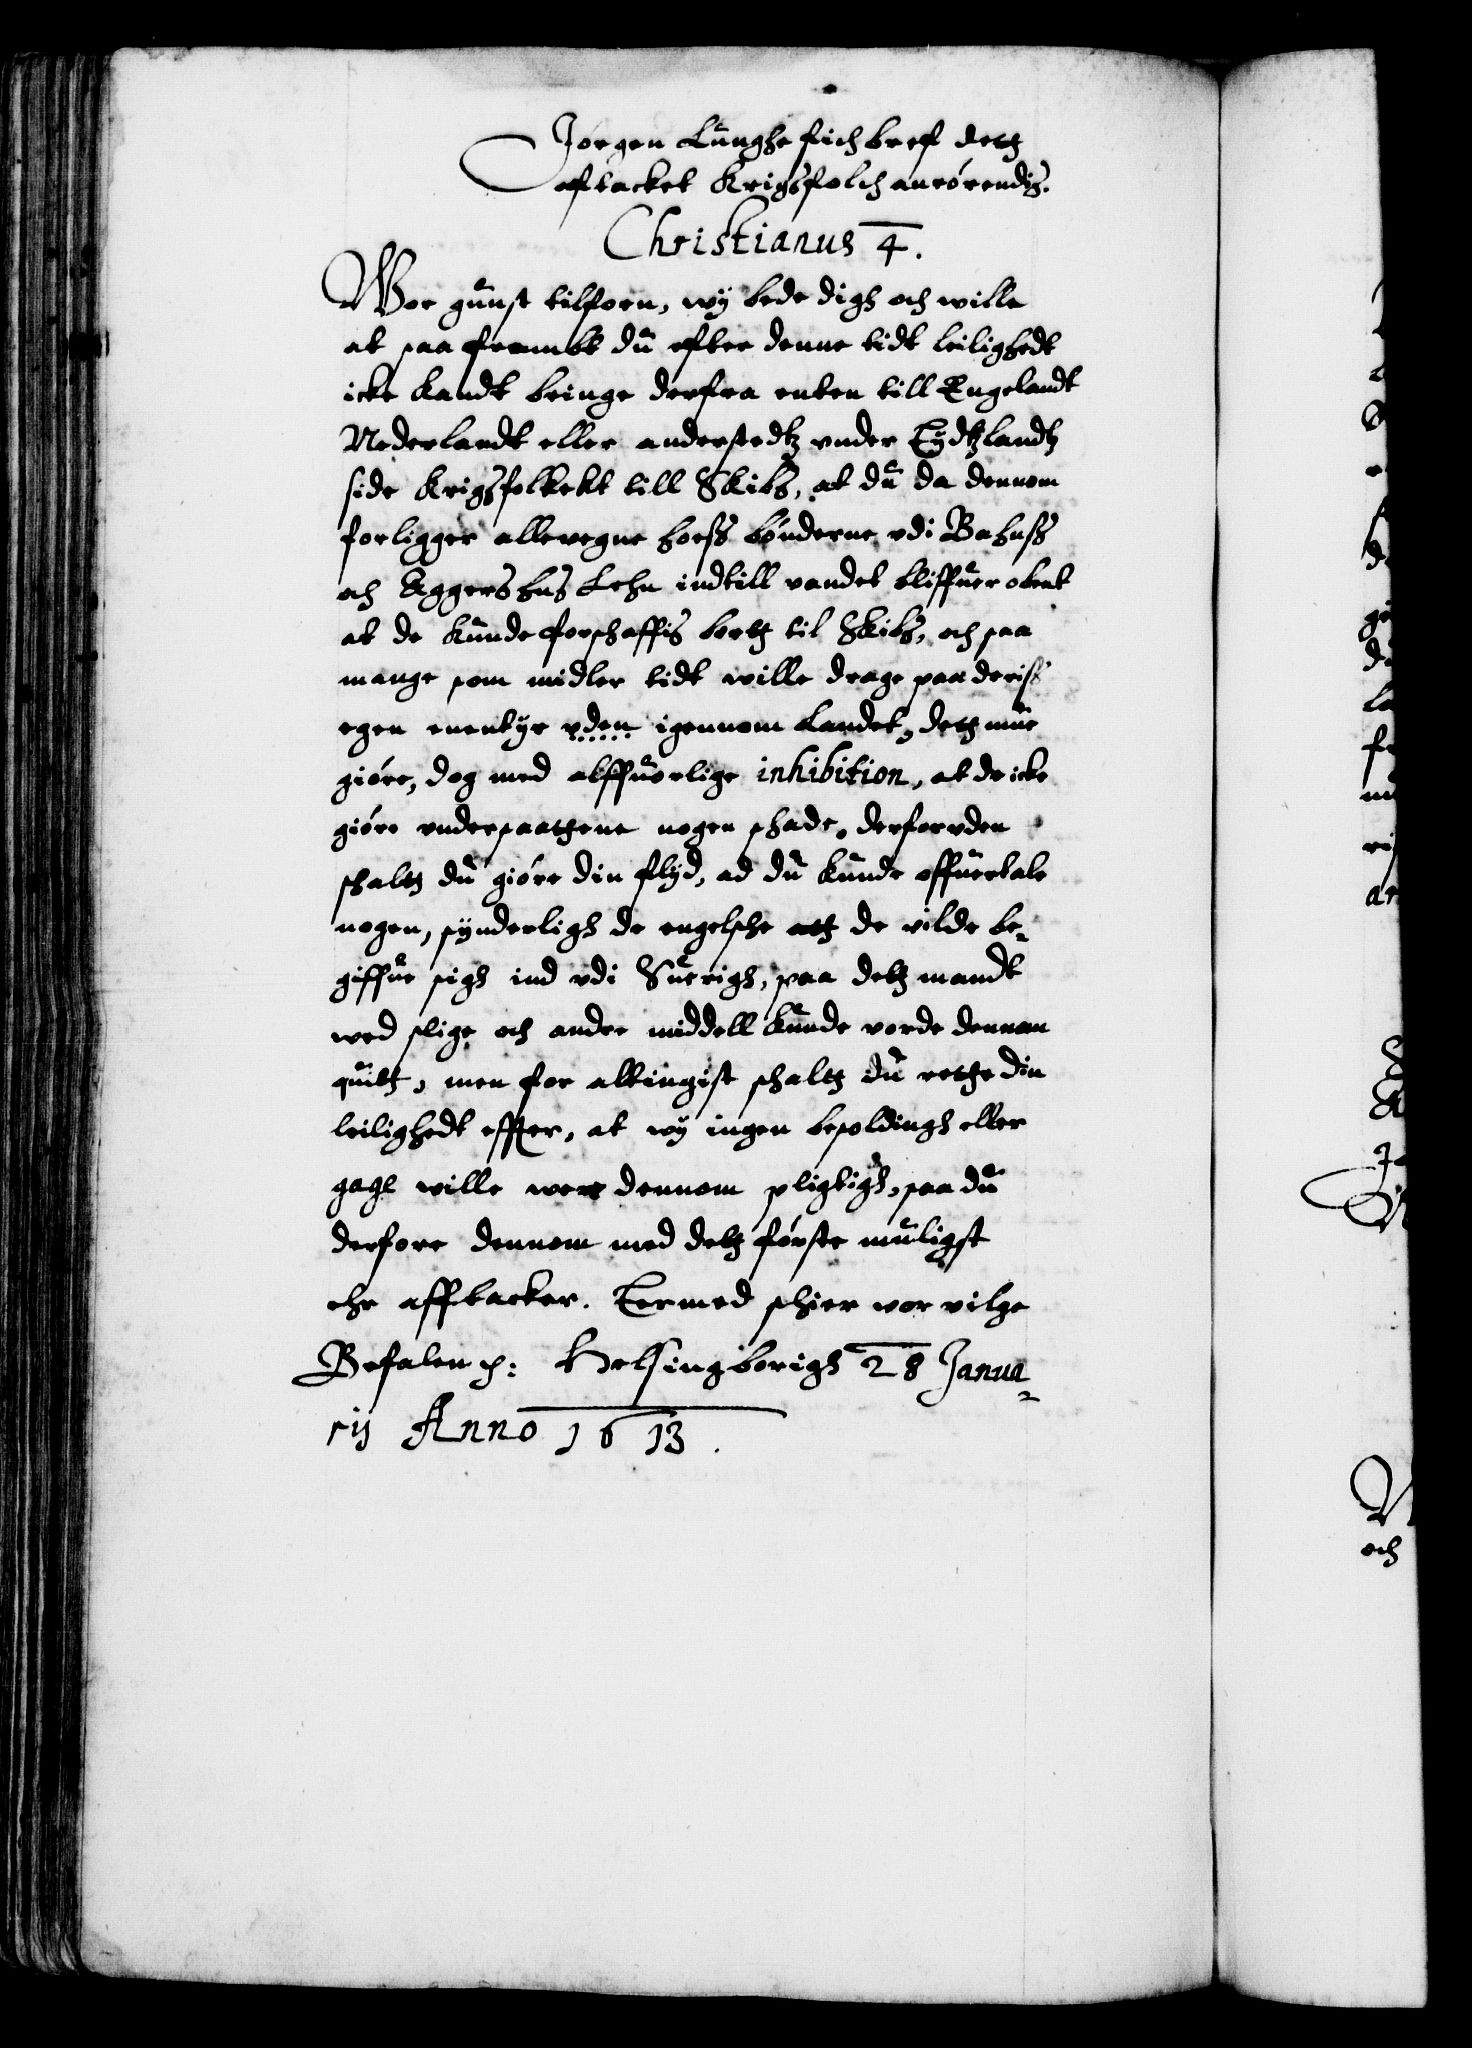 Jørgen Lunghe fich bref detz
aftacket Krigsfolch anrørendis.
Christianus 4.
Wor gunst tilforn, wÿ bede digh och wille
at saa frambt du efter denne tidt leilighedt
icke kandt bringe derfra enten till Engelandt
Nederlandt eller anderstedtz vnder Tÿdtzlandtz
side Krigsfolkekt till Skibs, at du da dennom
forligger allevegne hoess bønderne vdi Bahuss
och Aggershus Lehn indtill vandet bliffuer obent
at de kunde forschaffis bortz til Skibs, och saa
mange som midler tidt wille drage paa deris
egen euentÿr vden igennom Landet, detz mue
giøre, dog med alffuorlige inhibition, at de icke
giøre vndersaatzene nogen schade, derforvden
schaltz du giøre din flÿd, ad du kunde offuertale
nogen, sÿnderligh de engelsche atz de vilde be-
giffue sigh ind vdi Suerigh, paa detz mandt
wed slige och andre middell kunde vorde dennom
quitz, men for altingist schaltz du retze din
leilighedt effter, at wÿ ingen besoldingh eller
gage wille were dennom pligtigh, saa du
derfore dennom med detz første muligst
ehr afftacker. Termed scheer wor vilge
Befalen p: Helsingborigh 28 Janua-
rij Anno 1613.
och